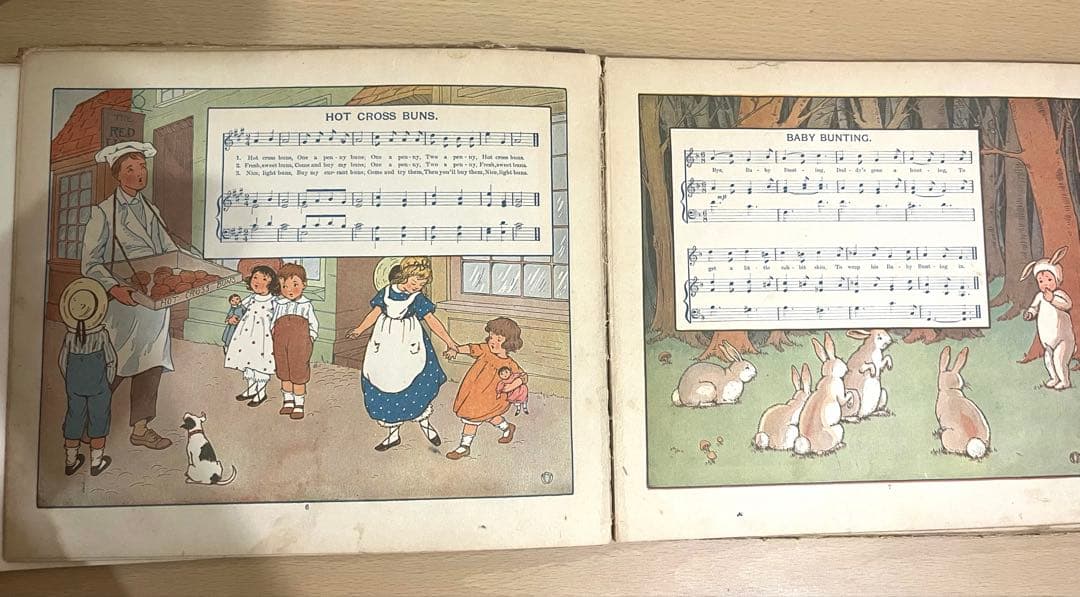 HOT CROSS BUNS.
THE
RED
1. Hot cross buns, One a pen-ny buns; One a pen-ny, Two a pen-ny, Hot cross buns.
2. Fresh, sweet buns, Come and buy my buns; One a pen-ny, Two a pen-ny, Fresh, sweet buns.
3. Nice, light buns, Buy my cur-rant buns; Come and try them, Then you'll buy them, Nice, light buns.
HOT CROSS BUNS
6
BABY BUNTING.
Bye, Ba-by Bunt-ing, Dad-dy's gone a hunt-ing, To
mf
get a lit-tle rab-bit skin, To wrap his Ba-by Bunt-ing in.
7